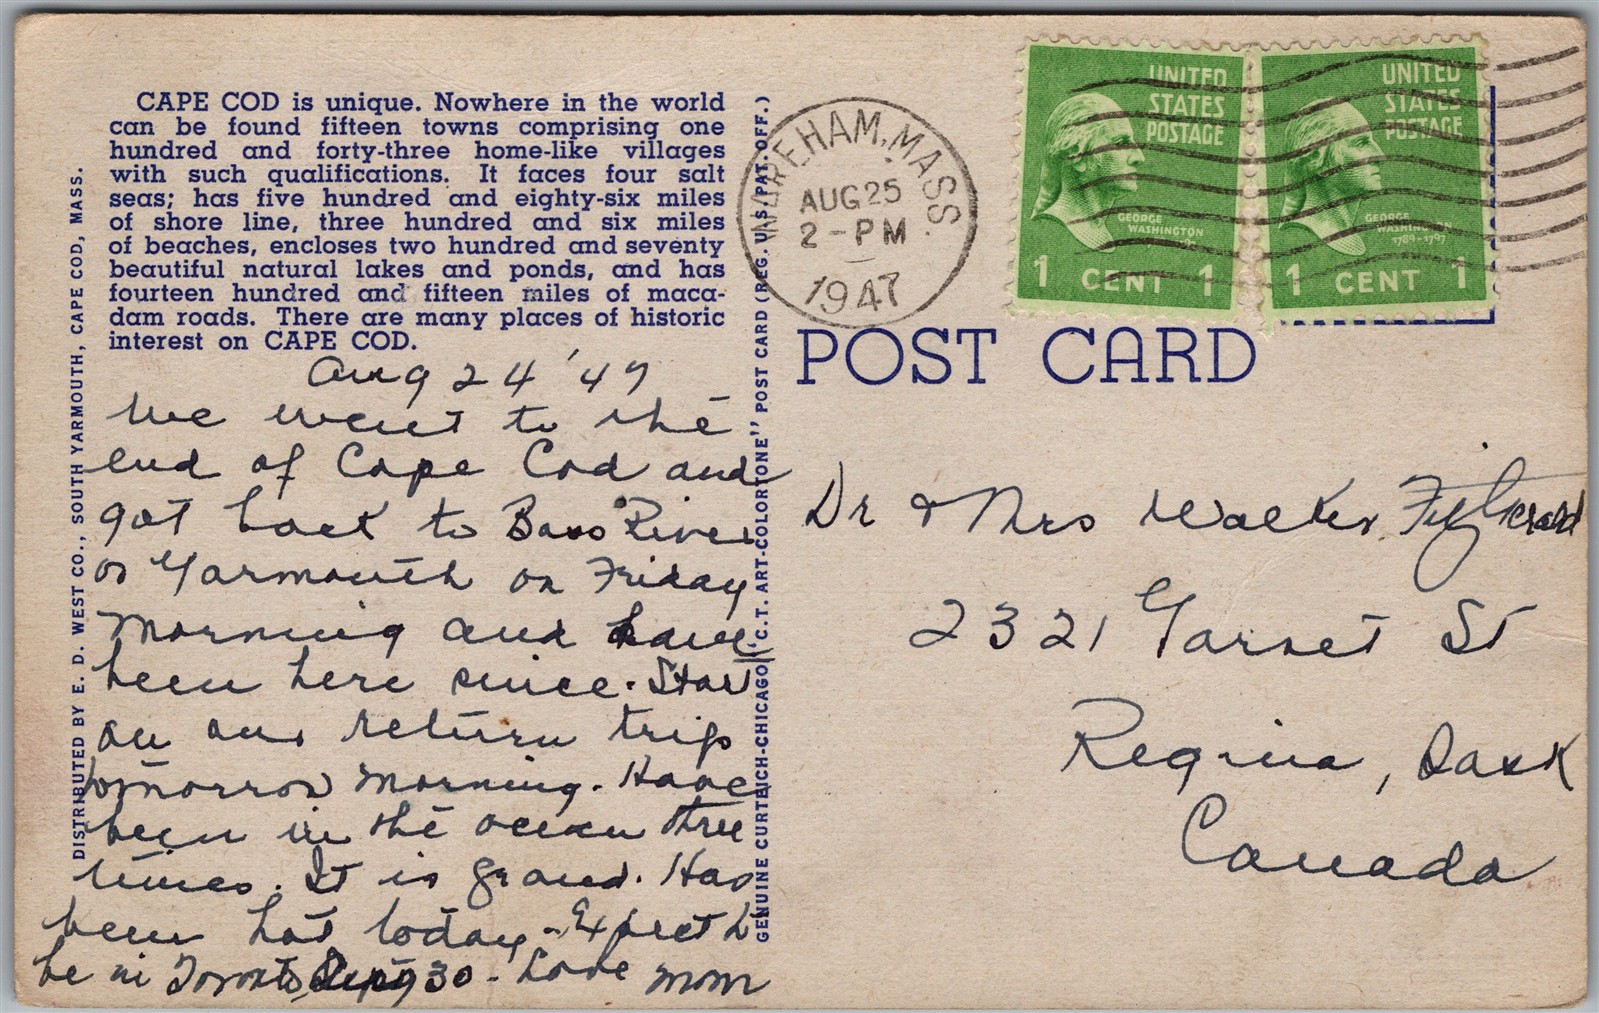 CAPE COD is unique. Nowhere in the world
can be found fifteen towns comprising one
hundred and forty-three home-like villages
with such qualifications. It faces four salt
seas; has five hundred and eighty-six miles
of shore line, three hundred and six miles
of beaches, encloses two hundred and seventy
beautiful natural lakes and ponds, and has
fourteen hundred and fifteen miles of maca-
dam roads. There are many places of historic
interest on CAPE COD.
Aug 24 '47
We went to the
end of Cape Cod and
got back to Bass River
or Yarmouth on Friday
morning and have
been here since. Start
on our return trip
tomorrow morning. Have
been in the ocean three
times. It is grand. Has
been hot today - Expect to
be in Toronto 30 - Love Mom
DISTRIBUTED BY E. D. WEST CO., SOUTH YARMOUTH, CAPE COD, MASS.
GENUINE CURTEICH-CHICAGO "C.T. ART-COLORTONE" POST CARD (REG. U.S. PAT. OFF.)
WAREHAM, MASS.
AUG 25
2 - PM
1947
UNITED
STATES
POSTAGE
GEORGE
WASHINGTON
1 CENT 1
UNITED
STATES
POSTAGE
GEORGE
WASHINGTON
1789-1797
1 CENT 1
POST CARD
Dr & Mrs Walter Fitzgerald
2321 Garnet St
Regina, Sask
Canada